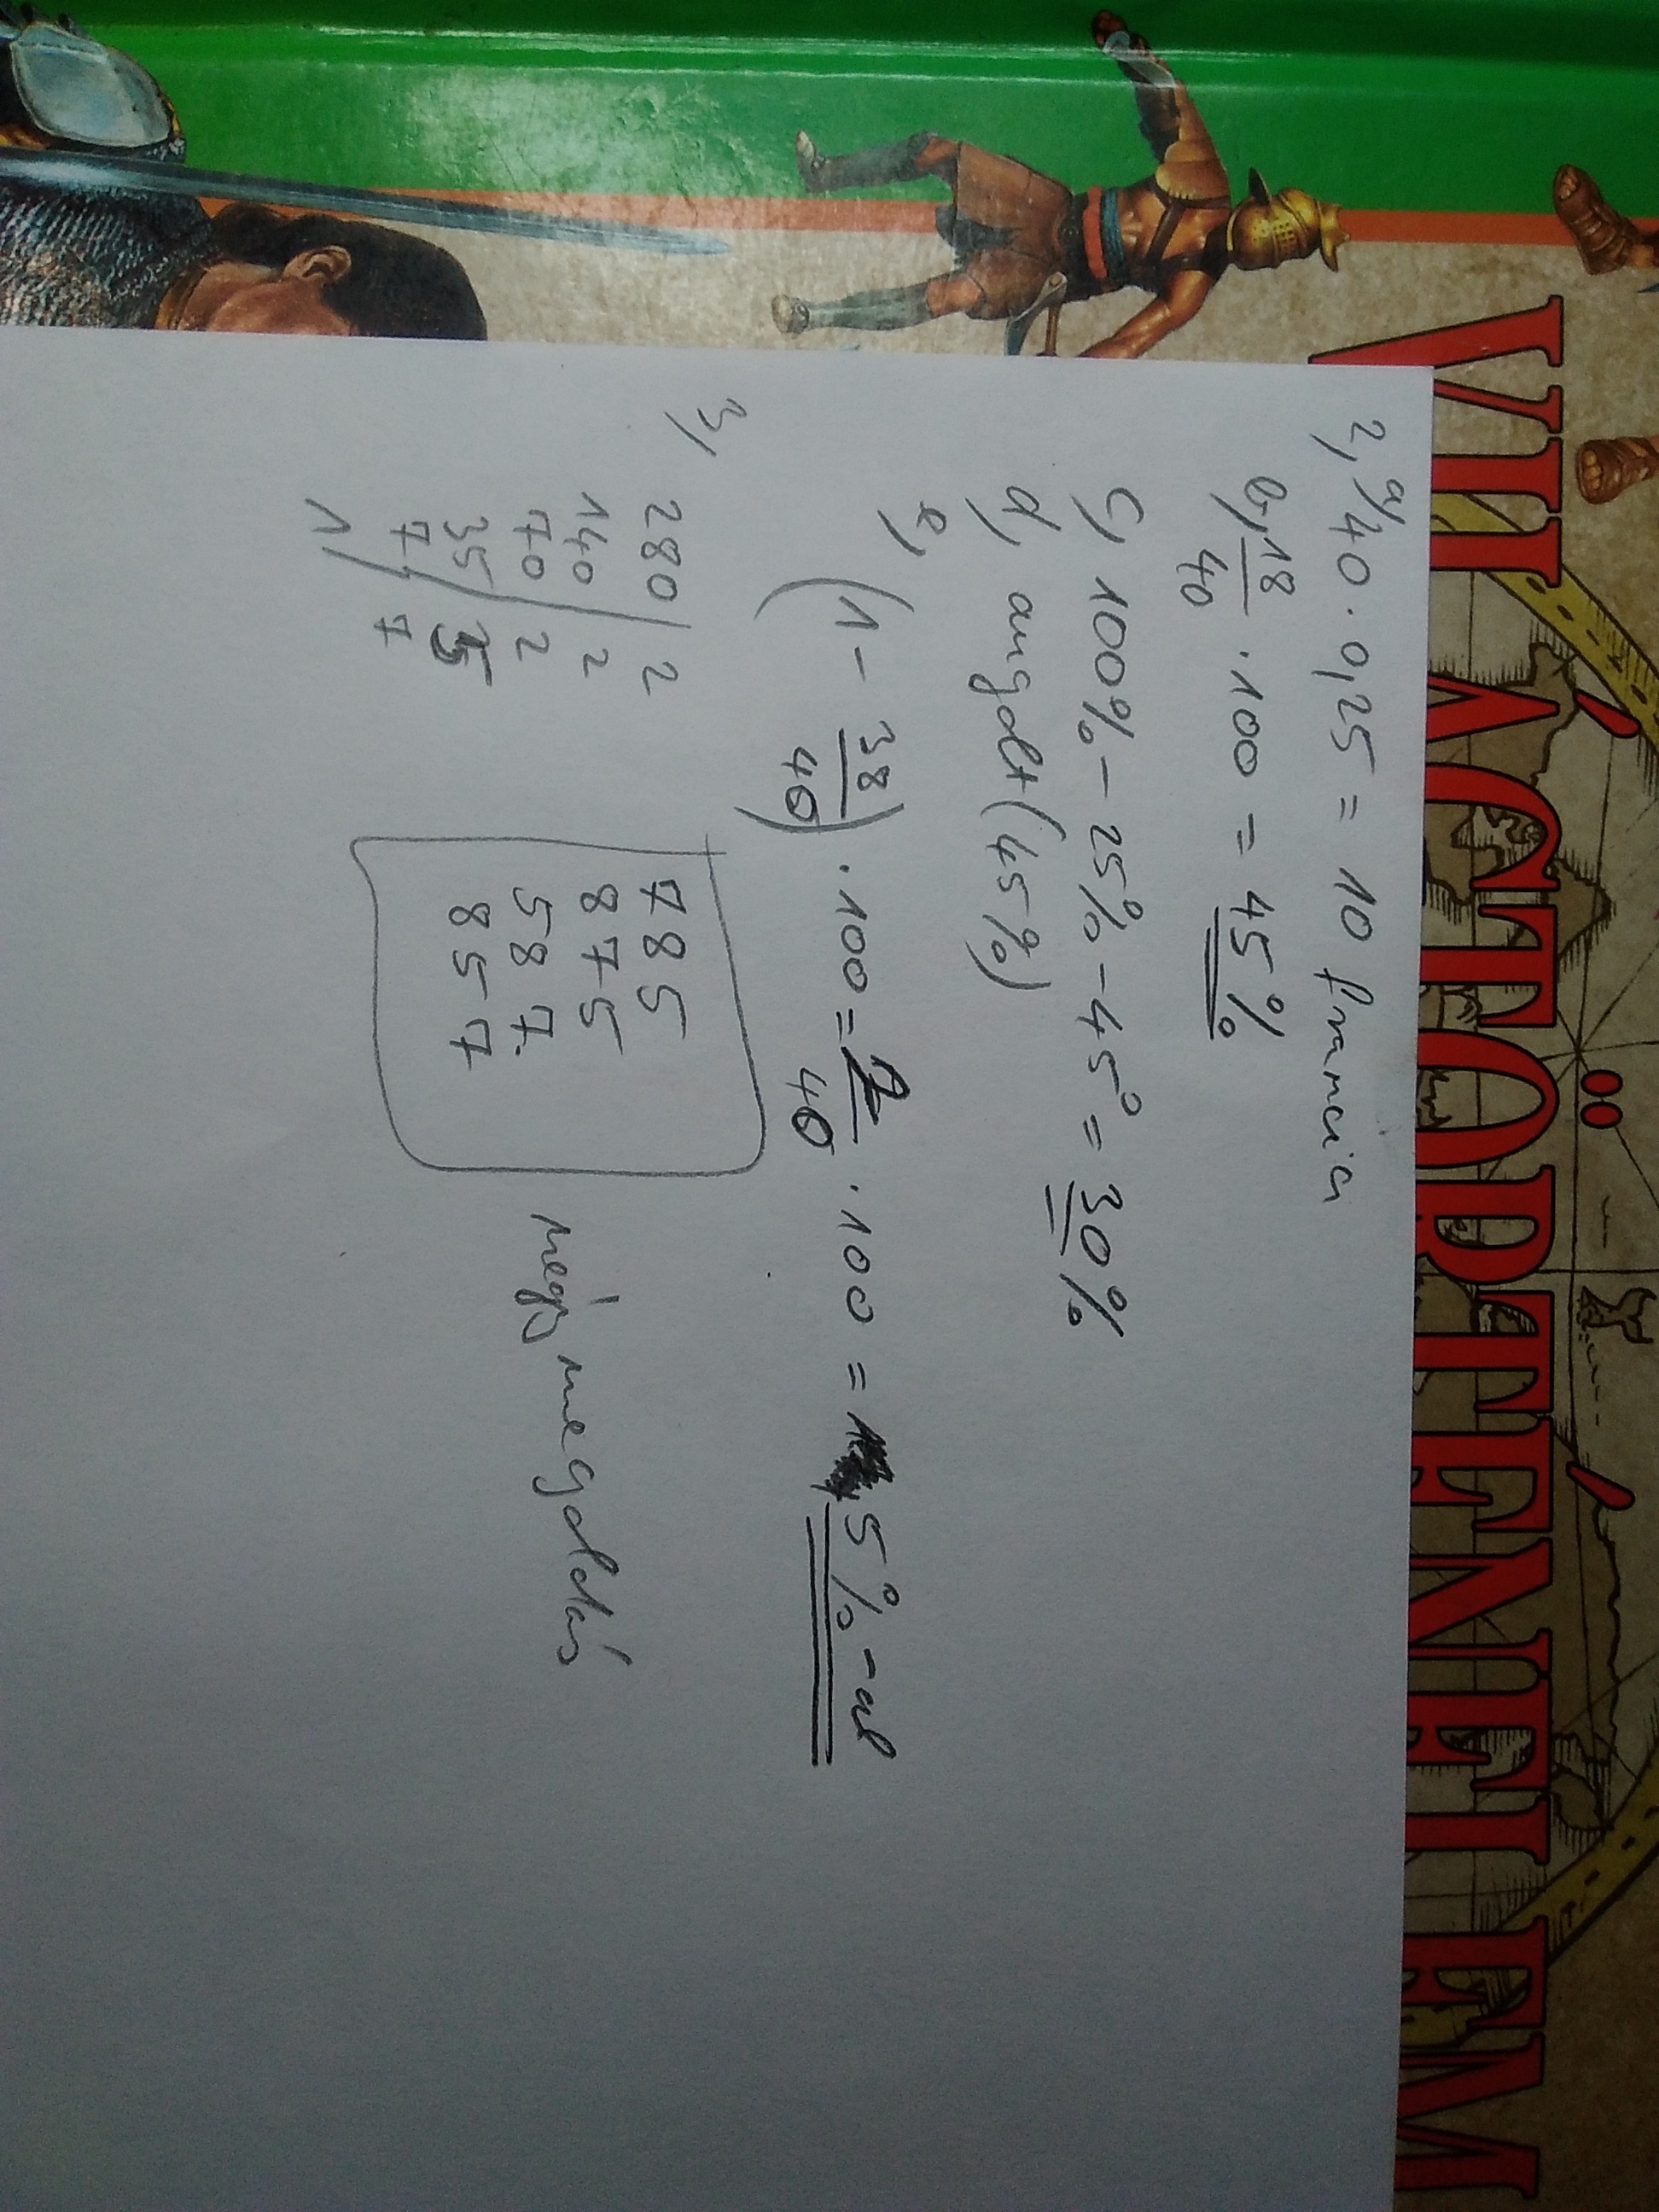 VILÁGTÖRTÉNELEM
2, a, 40 · 0,25 = 10 francia
b, 18/40 · 100 = 45%
c, 100% - 25% - 45° = 30%
d, angolt (45%)
e,
(1 - 38/40) · 100 = 2/40 · 100 = 5%-al
3,
280 | 2
140 | 2
70 | 2
35 | 5
7 | 7
1
785
875
587.
857
négy megoldás